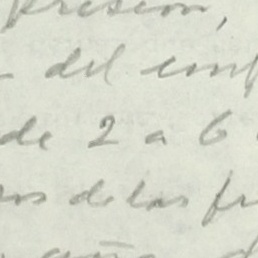 presion,
del emp
de 2 a 6
os de las fr